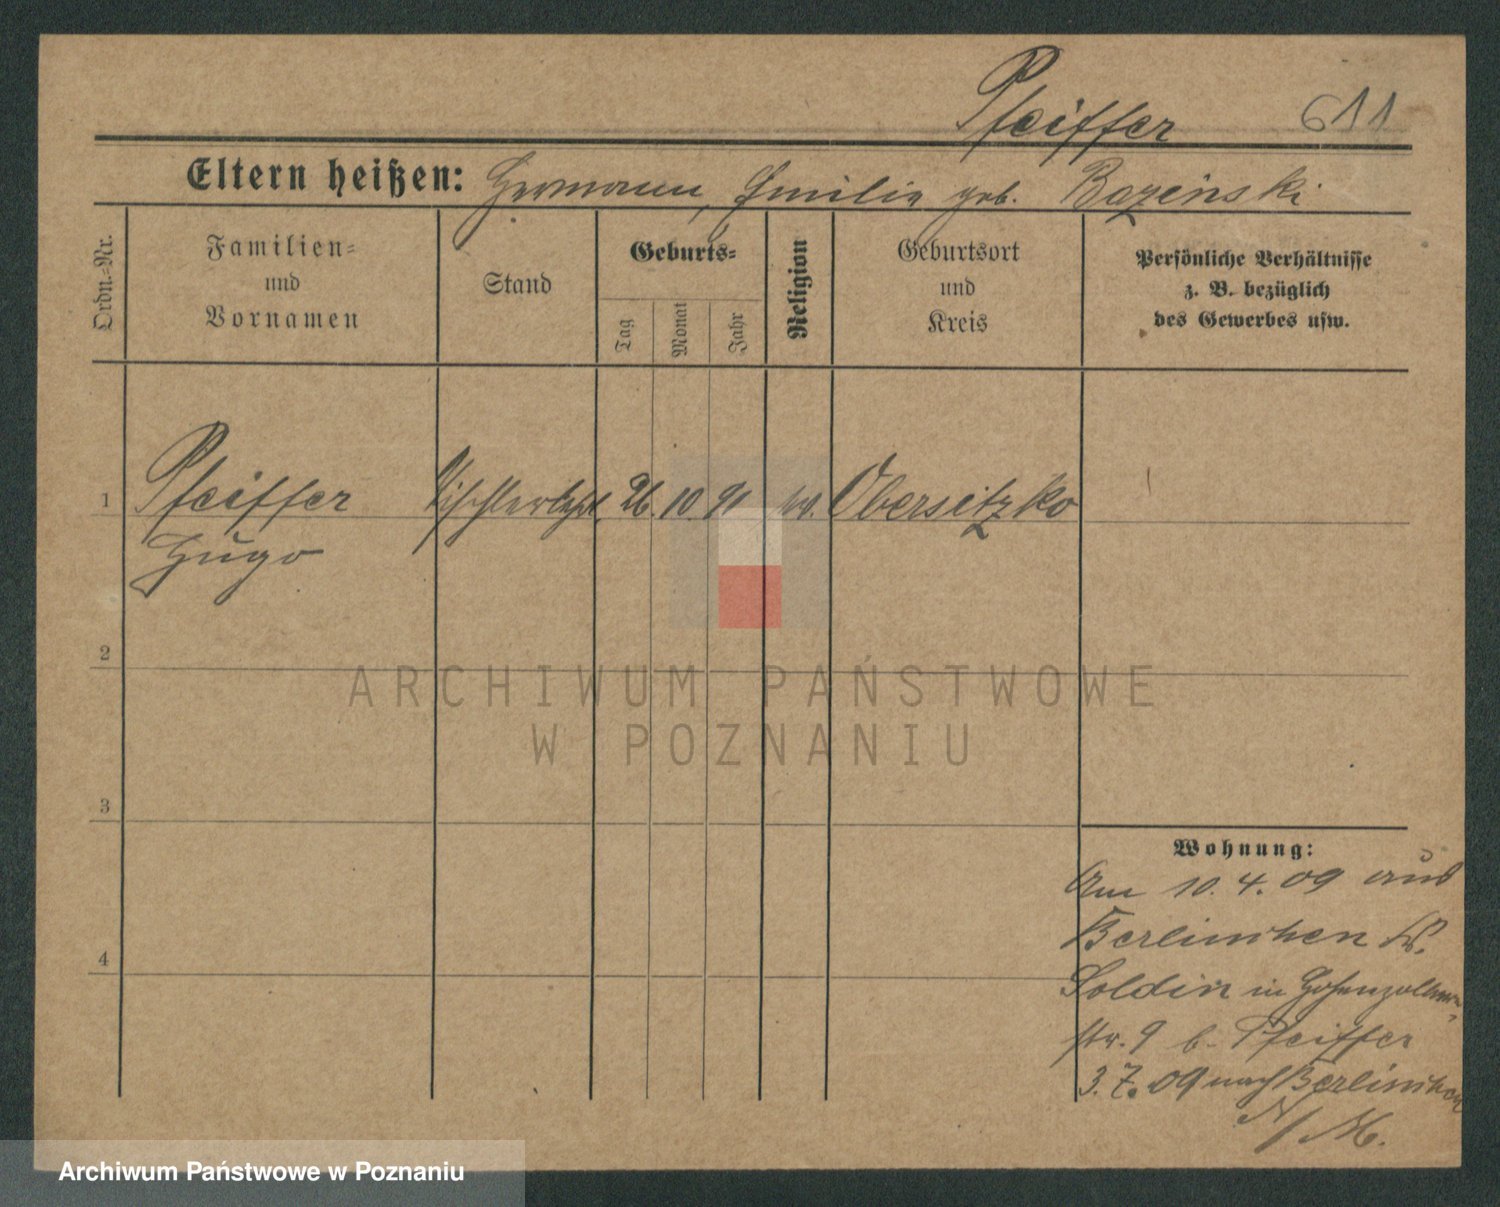 Pfeiffer 611
Eltern heißen: Hermann, Emilie geb. Bazeinski
Ordn.-Nr.
Familien-
und
Vornamen
Stand
Geburts-
Tag
Monat
Jahr
Religion
Geburtsort
und
Kreis
Persönliche Verhältnisse
z. B. bezüglich
des Gewerbes usw.
1 Pfeiffer Tischlerlehrl. 26. 10. 91 ev. Obersitzko
Hugo
2
3
4
Wohnung:
Am 10. 4. 09 aus
Berlinchen Kr.
Soldin in Hohenzollern-
str. 9 b. Pfeiffer
3. 7. 09 nach Berlinchen
N/M.
ARCHIWUM PAŃSTWOWE
W POZNANIU
Archiwum Państwowe w Poznaniu